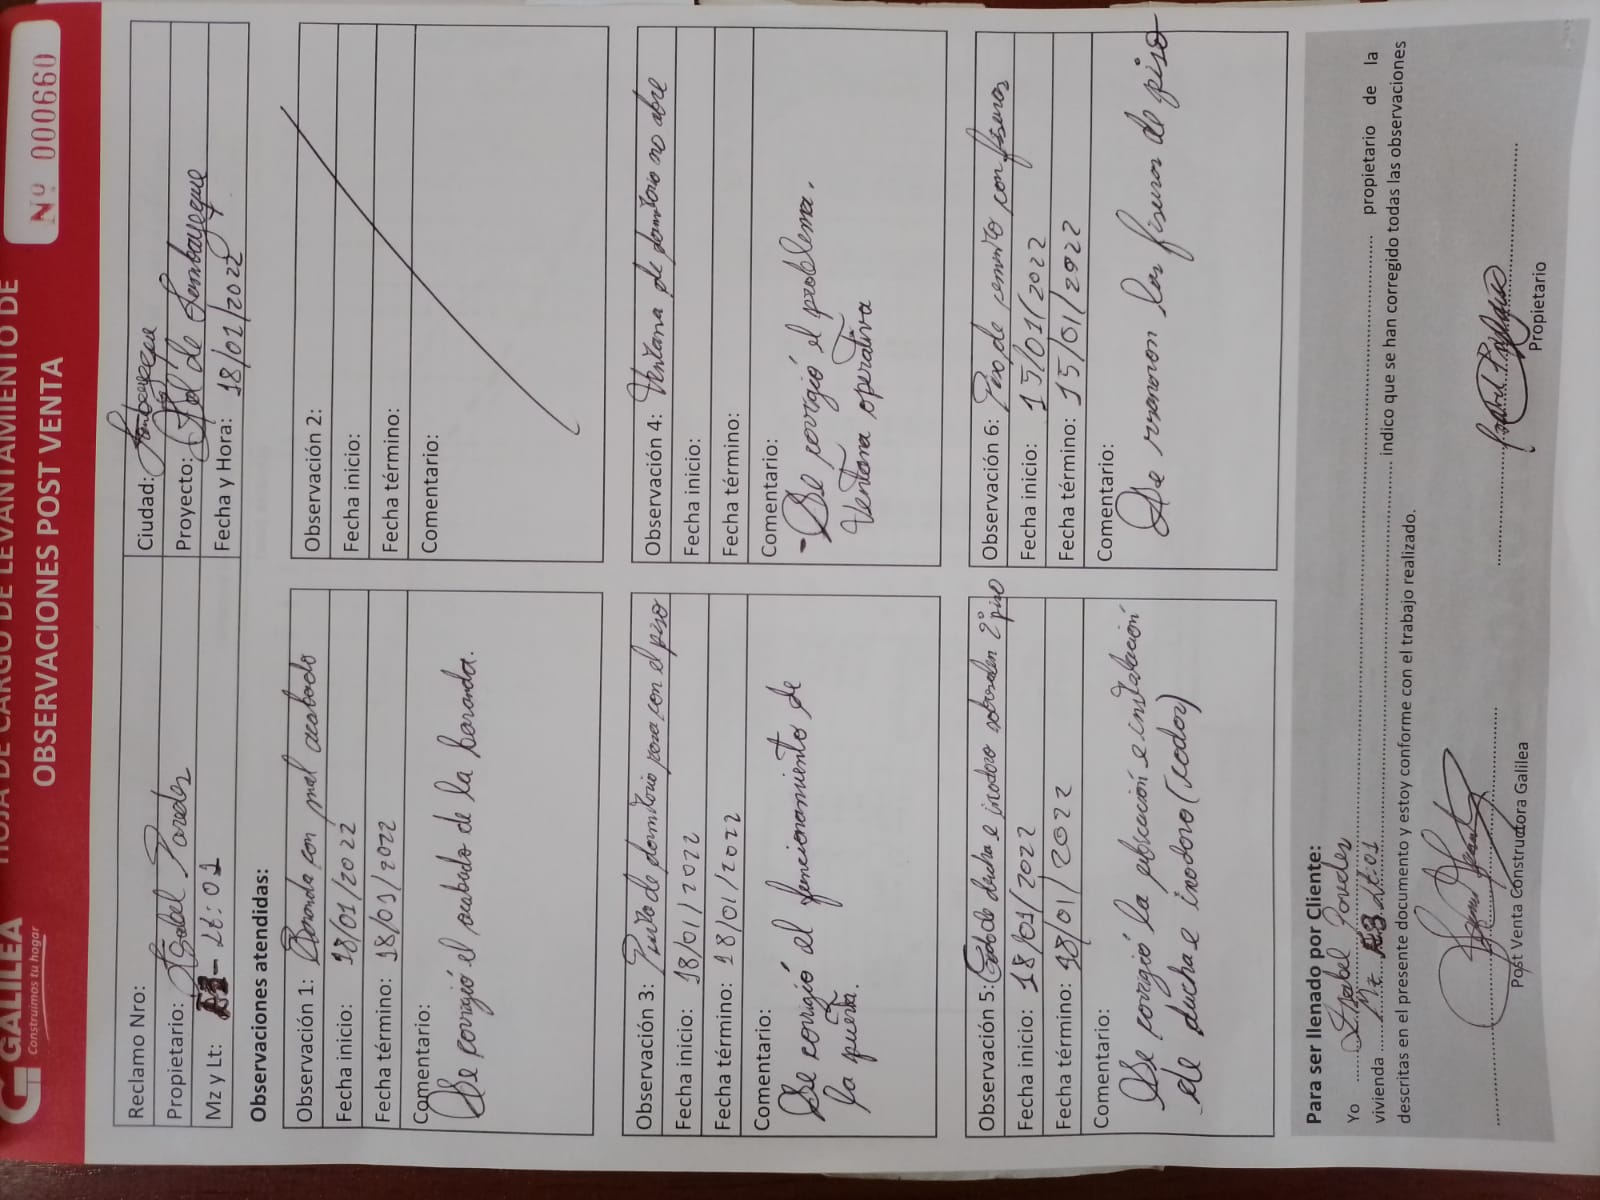 GALILEA
Construimos tu hogar
HOJA DE CARGO DE LEVANTAMIENTO DE
OBSERVACIONES POST VENTA
Nº 000660
Reclamo Nro:
Ciudad: Lambayeque
Propietario: Isabel Paredes
Proyecto: Sol de Lambayeque
Mz y Lt: - Lt: 01
Fecha y Hora: 18/01/2022
Observaciones atendidas:
Observación 1: Baranda con mal acabado
Fecha inicio: 18/01/2022
Fecha término: 18/01/2022
Comentario:
Se corrigió el acabado de la baranda.
Observación 2:
Fecha inicio:
Fecha término:
Comentario:
Observación 3: Puerta de dormitorio con el piso
Fecha inicio: 18/01/2022
Fecha término: 18/01/2022
Comentario:
Se corrigió el funcionamiento de
la puerta.
Observación 4: Ventana de dormitorio no abre
Fecha inicio:
Fecha término:
Comentario:
- Se corrigió el problema.
Ventana operativa
Observación 5: Codo de ducha e inodoro sobresalen 2º piso
Fecha inicio: 18/01/2022
Fecha término: 18/01/2022
Comentario:
Se corrigió la ubicación e instalación
de ducha e inodoro (codos)
Observación 6: Piso de cemento con fisuras
Fecha inicio: 15/01/2022
Fecha término: 15/01/2022
Comentario:
Se resanaron las fisuras de piso
Para ser llenado por Cliente:
Yo Isabel Paredes propietario de la
vivienda Mz Lt:01 indico que se han corregido todas las observaciones
descritas en el presente documento y estoy conforme con el trabajo realizado.
Post Venta Constructora Galilea
Propietario